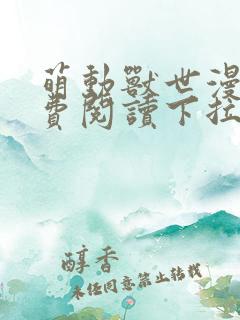 萌動獸世漫
費閱讀下拉
醇香
未經同意禁止轉載